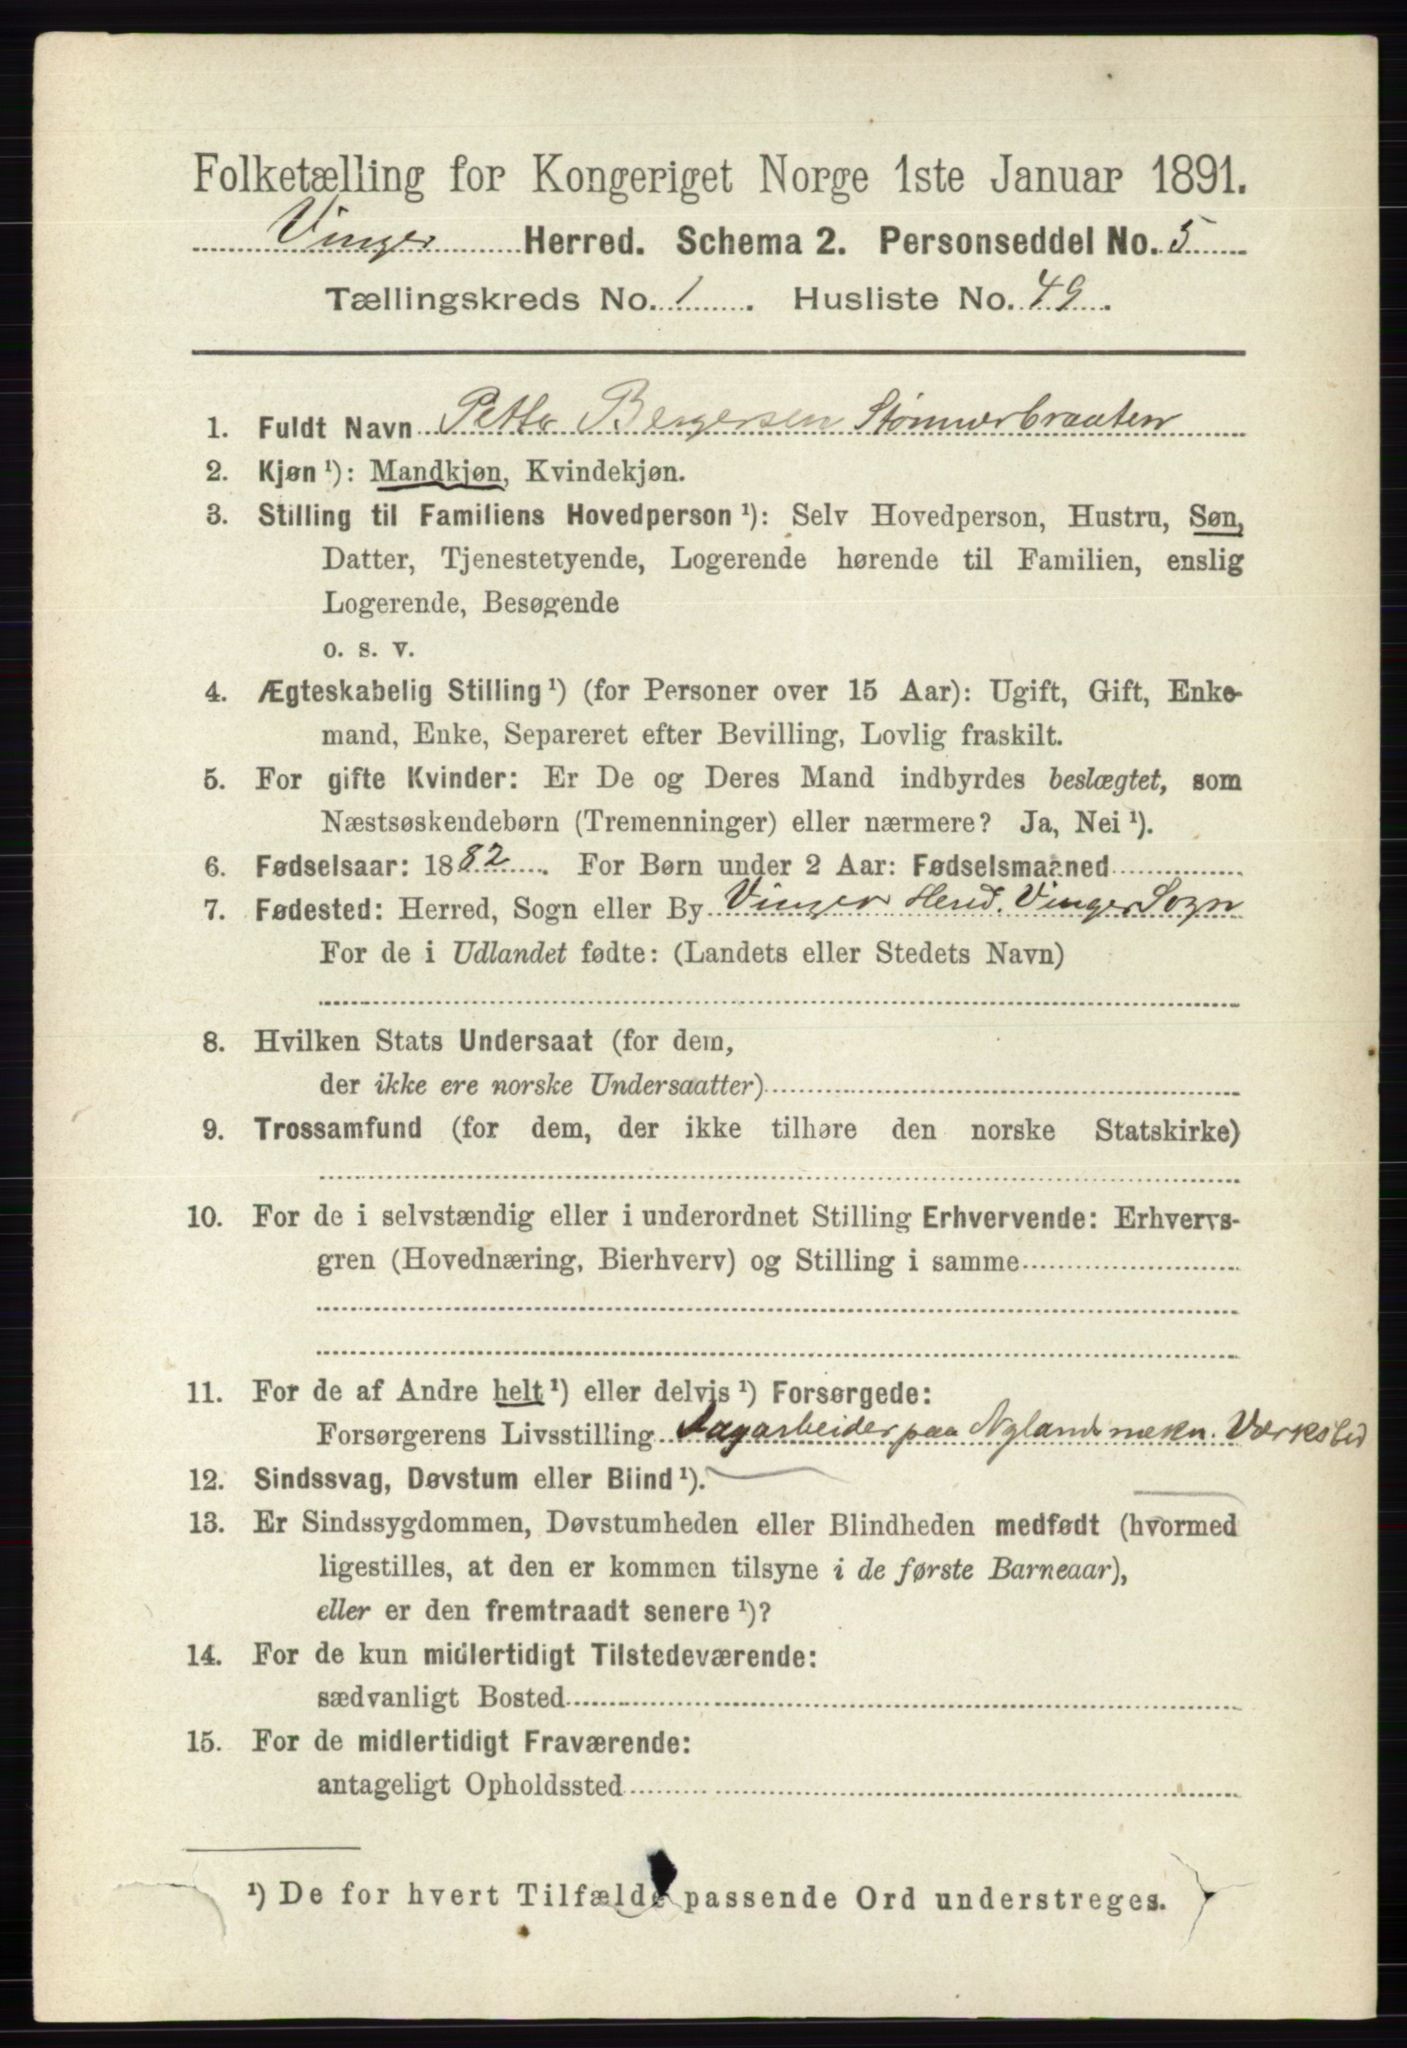 Folketælling for Kongeriget Norge 1ste Januar 1891.
Vinger Herred. Schema 2. Personseddel No. 5
Tællingskreds No. 1. Husliste No. 49.
1. Fuldt Navn Petter Bergersen Stømnerbraaten
2. Kjøn ¹): Mandkjøn, Kvindekjøn.
3. Stilling til Familiens Hovedperson ¹): Selv Hovedperson, Hustru, Søn,
Datter, Tjenestetyende, Logerende hørende til Familien, enslig
Logerende, Besøgende
o. s. v.
4. Ægteskabelig Stilling ¹) (for Personer over 15 Aar): Ugift, Gift, Enke-
mand, Enke, Separeret efter Bevilling, Lovlig fraskilt.
5. For gifte Kvinder: Er De og Deres Mand indbyrdes beslægtet, som
Næstsøskendebørn (Tremenninger) eller nærmere? Ja, Nei ¹).
6. Fødselsaar: 1882. For Børn under 2 Aar: Fødselsmaaned
7. Fødested: Herred, Sogn eller By Vinger Herred. Vinger Sogn
For de i Udlandet fødte: (Landets eller Stedets Navn)
8. Hvilken Stats Undersaat (for dem,
der ikke ere norske Undersaatter)
9. Trossamfund (for dem, der ikke tilhøre den norske Statskirke)
10. For de i selvstændig eller i underordnet Stilling Erhvervende: Erhvervs-
gren (Hovednæring, Bierhverv) og Stilling i samme
11. For de af Andre helt ¹) eller delvis ¹) Forsørgede:
Forsørgerens Livsstilling Dagarbeider paa Nylands mekn. Værksted
12. Sindssvag, Døvstum eller Blind ¹).
13. Er Sindssygdommen, Døvstumheden eller Blindheden medfødt (hvormed
ligestilles, at den er kommen tilsyne i de første Barneaar),
eller er den fremtraadt senere ¹)?
14. For de kun midlertidigt Tilstedeværende:
sædvanligt Bosted
15. For de midlertidigt Fraværende:
antageligt Opholdssted
¹) De for hvert Tilfælde passende Ord understreges.